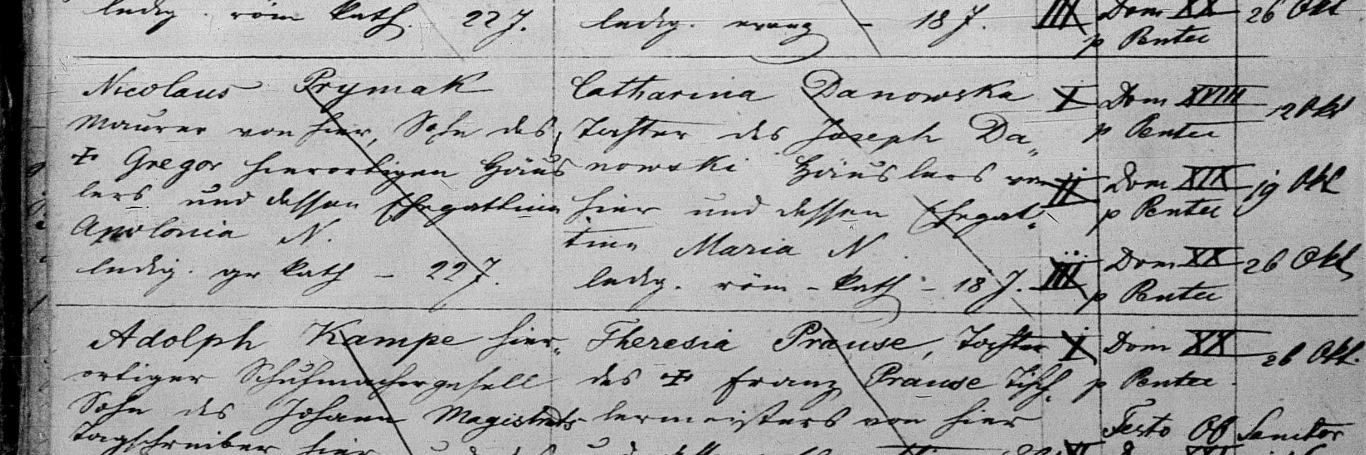 ledig. röm kath. 22 J. ledig. evang – 18 J. III Dom XX 26 Okt
p Pentec
Nicolaus Prymak Catharina Danowska I Dom XVIII 12 Okt
Maurer von hier, Sohn des Tochter des Joseph Da„ p Pentec
✝ Gregor hierortigen Häus nowski Häuslers von II Dom XIX 19 Okt
lers und dessen Ehegattinn hier und dessen Ehegat„ p Pentec
Apolonia N. tinn Maria N.
ledig. gr kath – 22 J. ledig. röm – kath – 18 J. III Dom XX 26 Okt
p Pentec
Adolph Kampe hier„ Theresia Prause, Tochter I Dom XX 26 Okt.
ortiger Schuhmachergesell des ✝ Franz Prause Tisch„ p Pentec.
Sohn des Johann Magistrats lermeisters von hier Festo OO Sanctor
Tagschreiber hier und